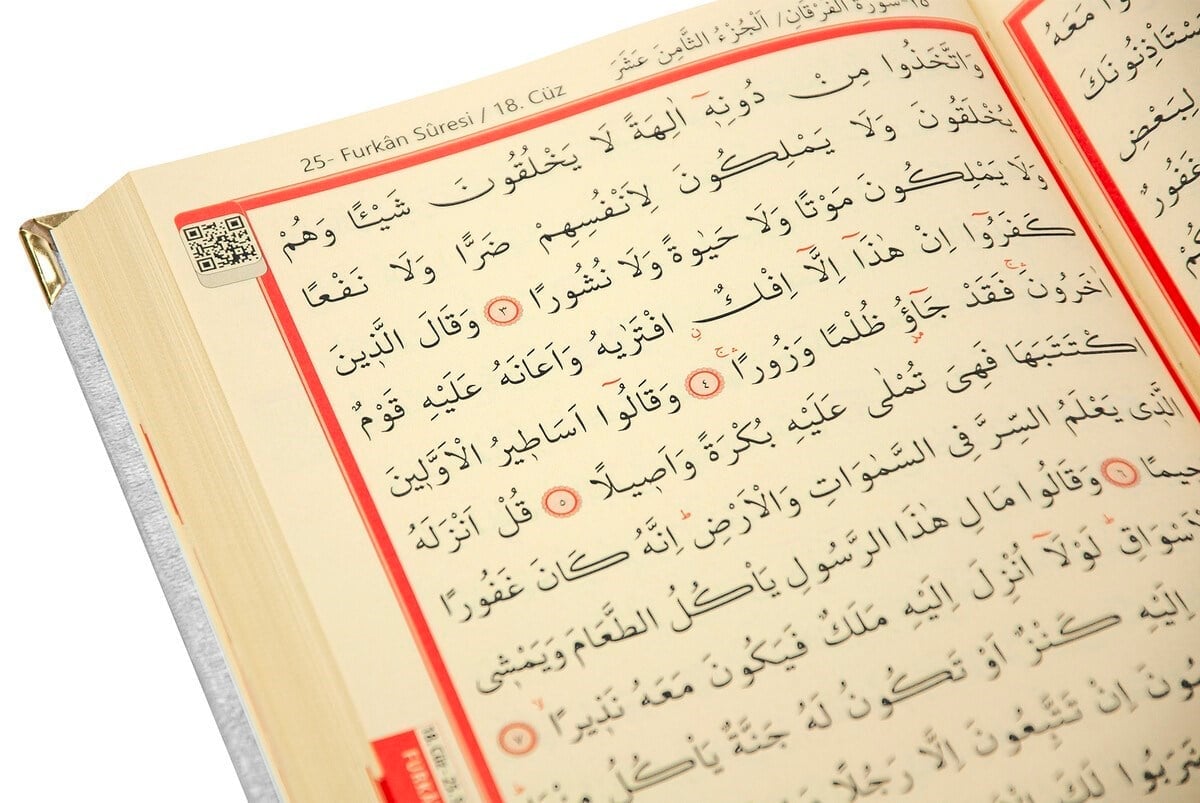 ٢٥- سورة الفرقان / اَلْجُزْءُ الثَّامِنَ عَشَرَ
25- Furkân Sûresi / 18. Cüz
وَاتَّخَذُوا مِنْ دُونِه۪ٓ اٰلِهَةً لَا يَخْلُقُونَ شَيْـًٔا وَهُمْ
يُخْلَقُونَ وَلَا يَمْلِكُونَ لِاَنْفُسِهِمْ ضَرًّا وَلَا نَفْعًا
وَلَا يَمْلِكُونَ مَوْتًا وَلَا حَيٰوةً وَلَا نُشُورًا ﴿٣﴾ وَقَالَ الَّذ۪ينَ
كَفَرُٓوا اِنْ هٰذَٓا اِلَّٓا اِفْكٌۨ افْتَرٰيهُ وَاَعَانَهُ عَلَيْهِ قَوْمٌ
اٰخَرُونَۚ فَقَدْ جَٓاؤُ۫ ظُلْمًا وَزُورًاۚ ﴿٤﴾ وَقَالُٓوا اَسَاط۪يرُ الْاَوَّل۪ينَ
اكْتَتَبَهَا فَهِيَ تُمْلٰى عَلَيْهِ بُكْرَةً وَاَص۪يلًا ﴿٥﴾ قُلْ اَنْزَلَهُ
الَّذ۪ي يَعْلَمُ السِّرَّ فِي السَّمٰوَاتِ وَالْاَرْضِۜ اِنَّهُ كَانَ غَفُورًا
حيمًا ﴿٦﴾ وَقَالُوا مَالِ هٰذَا الرَّسُولِ يَأْكُلُ الطَّعَامَ وَيَمْش۪ي
اَسْوَاقِۜ لَوْلَٓا اُنْزِلَ اِلَيْهِ مَلَكٌ فَيَكُونَ مَعَهُ نَذ۪يرًاۙ ﴿٧﴾
اِلَيْهِ كَنْزٌ اَوْ تَكُونُ لَهُ جَنَّةٌ يَأْكُلُ
ونَ اِنْ تَتَّبِعُونَ اِلَّا رَجُلًا
ضَرَبُوا لَكَ
مَعَهُ
لِبَعْضِ
غَفُورٌ